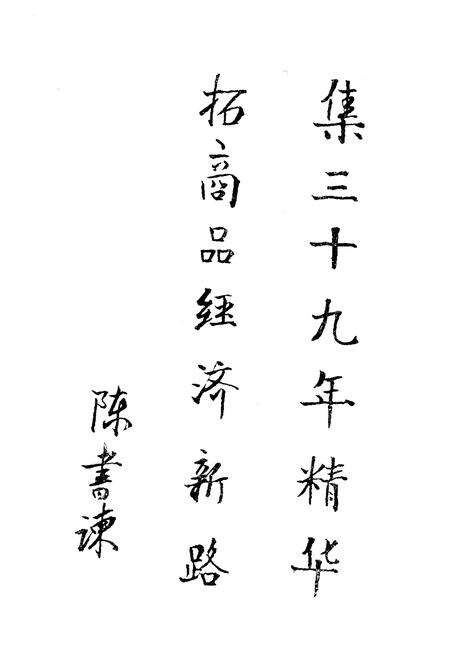 集三十九年精华
拓商品経济新路
陈書谏